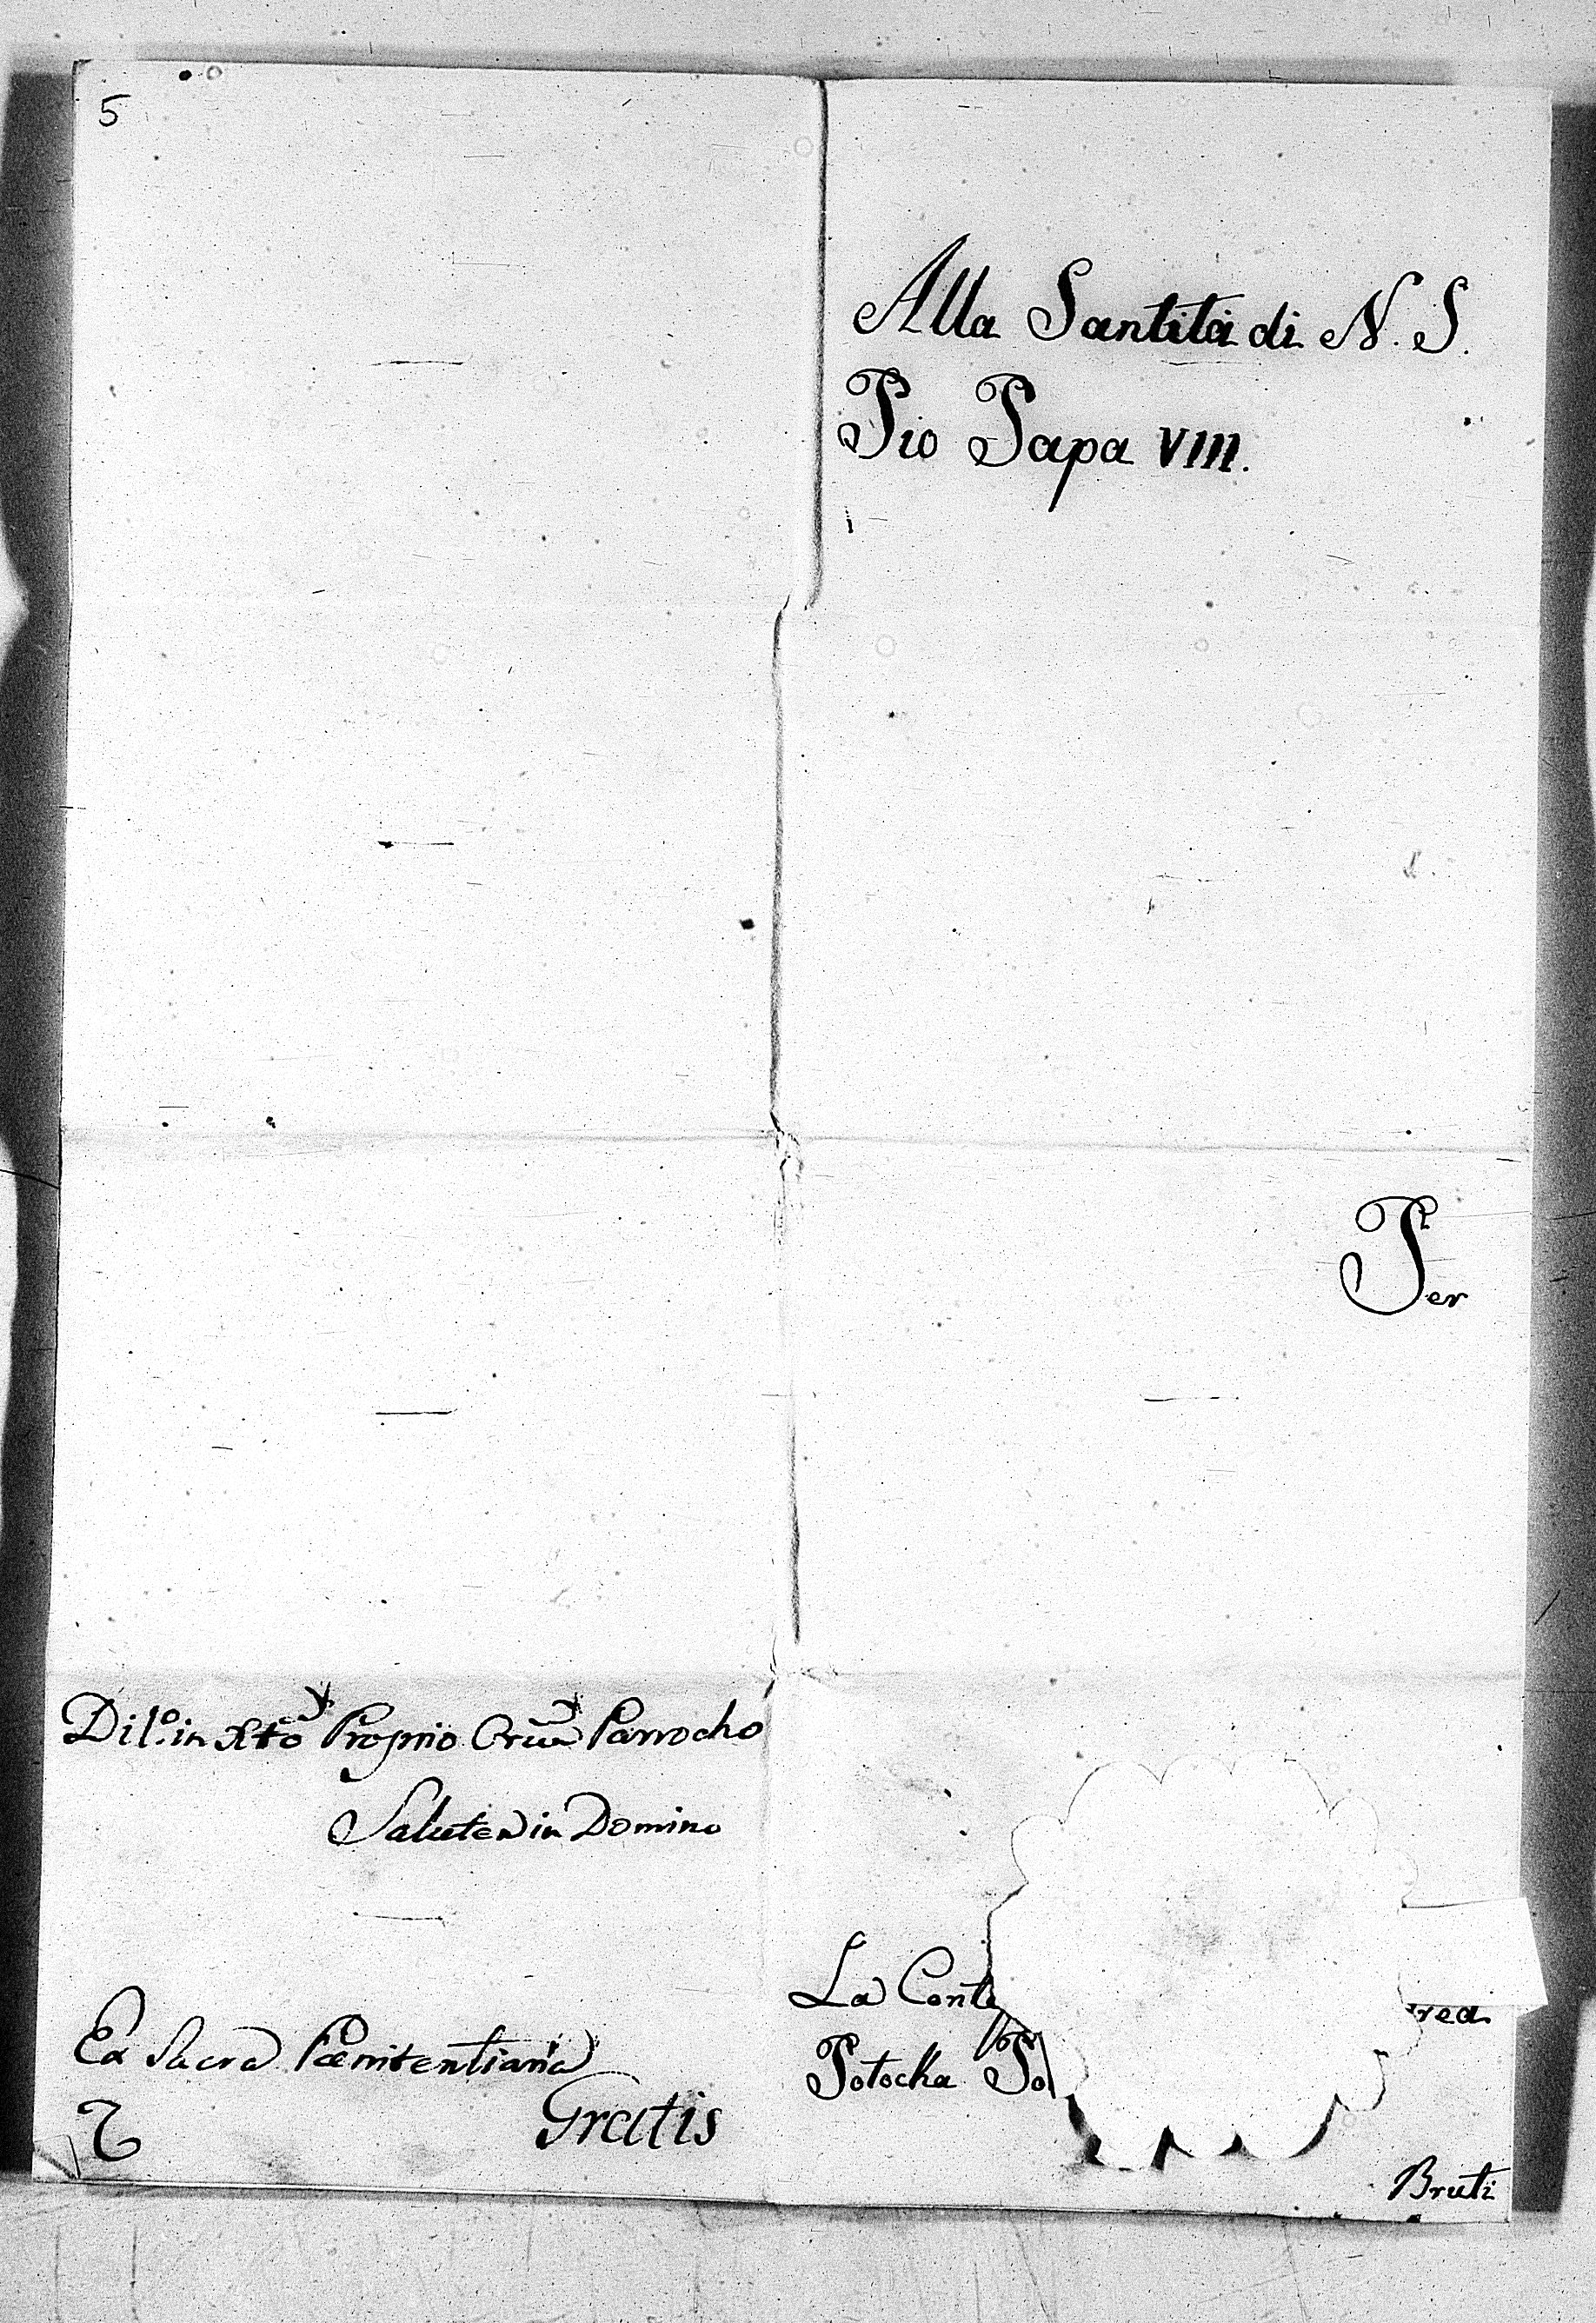 5
Alla Santità di N. S.
Pio Papa VIII.
Per
La Conte
red.
Potocka Po
Bruti
Dil.o in Xto Proprio Parrocho
Salutem in Domino
Ex Sacra Pænitentiaria
Gratis